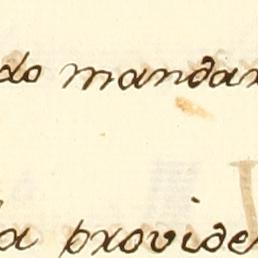 do mandan
la provide